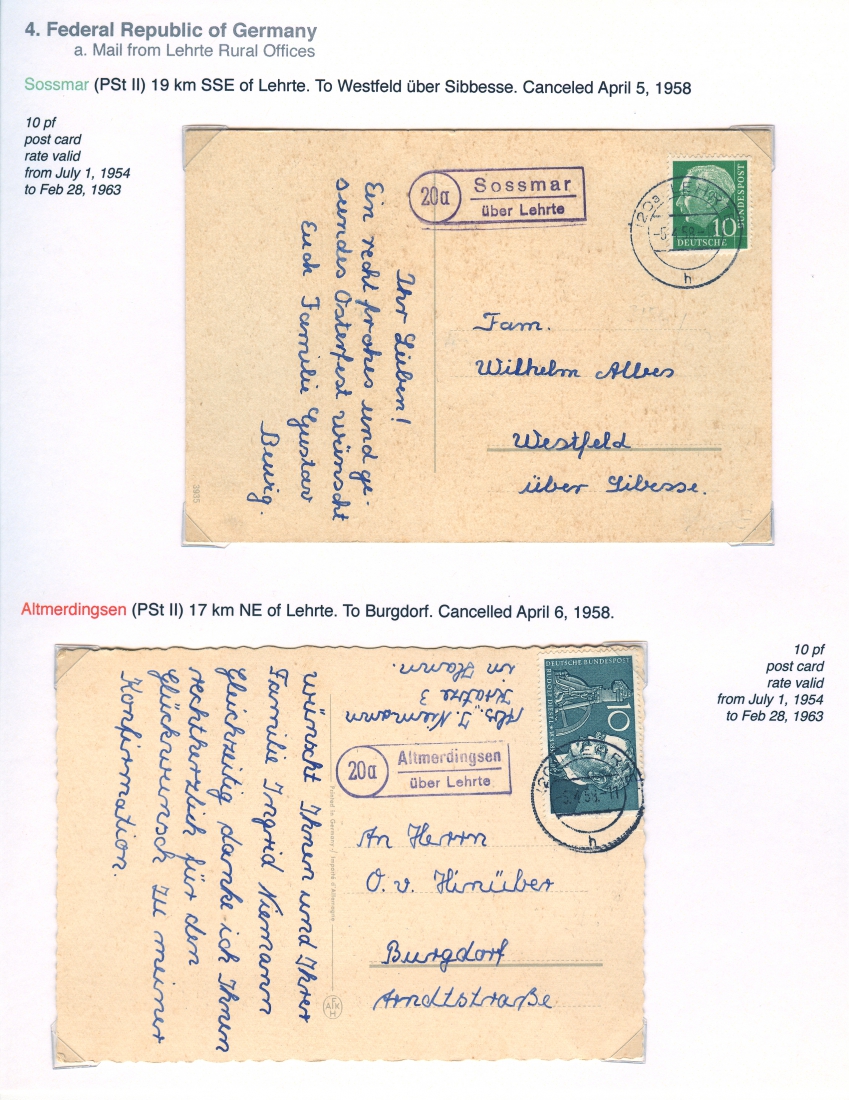 4. Federal Republic of Germany
a. Mail from Lehrte Rural Offices
Sossmar (PSt II) 19 km SSE of Lehrte. To Westfeld über Sibbesse. Canceled April 5, 1958
10 pf
post card
rate valid
from July 1, 1954
to Feb 28, 1963
20a
Sossmar
über Lehrte
10
DEUTSCHE
BUNDESPOST
h
Ihr Lieben!
Ein recht frohes und ge-
sundes Osterfest wünscht
Euch Familie Gustav
Bewig.
Fam.
Wilhelm Albes
Westfeld
über Sibesse.
3935
Altmerdingsen (PSt II) 17 km NE of Lehrte. To Burgdorf. Cancelled April 6, 1958.
10 pf
post card
rate valid
from July 1, 1954
to Feb 28, 1963
Abs. I. Niemann
3
in Hann.
DEUTSCHE BUNDESPOST
10
h
20a
Altmerdingsen
über Lehrte
wünscht Ihnen und Ihrer
Familie Ingrid Niemann
Gleichzeitig danke ich Ihnen
recht herzlich für den
Glückwunsch zu meiner
Konfirmation.
Printed in Germany / Imprimé d'Allemagne
An Herrn
O. v. Hinüber
Burgdorf
Arndtstraße